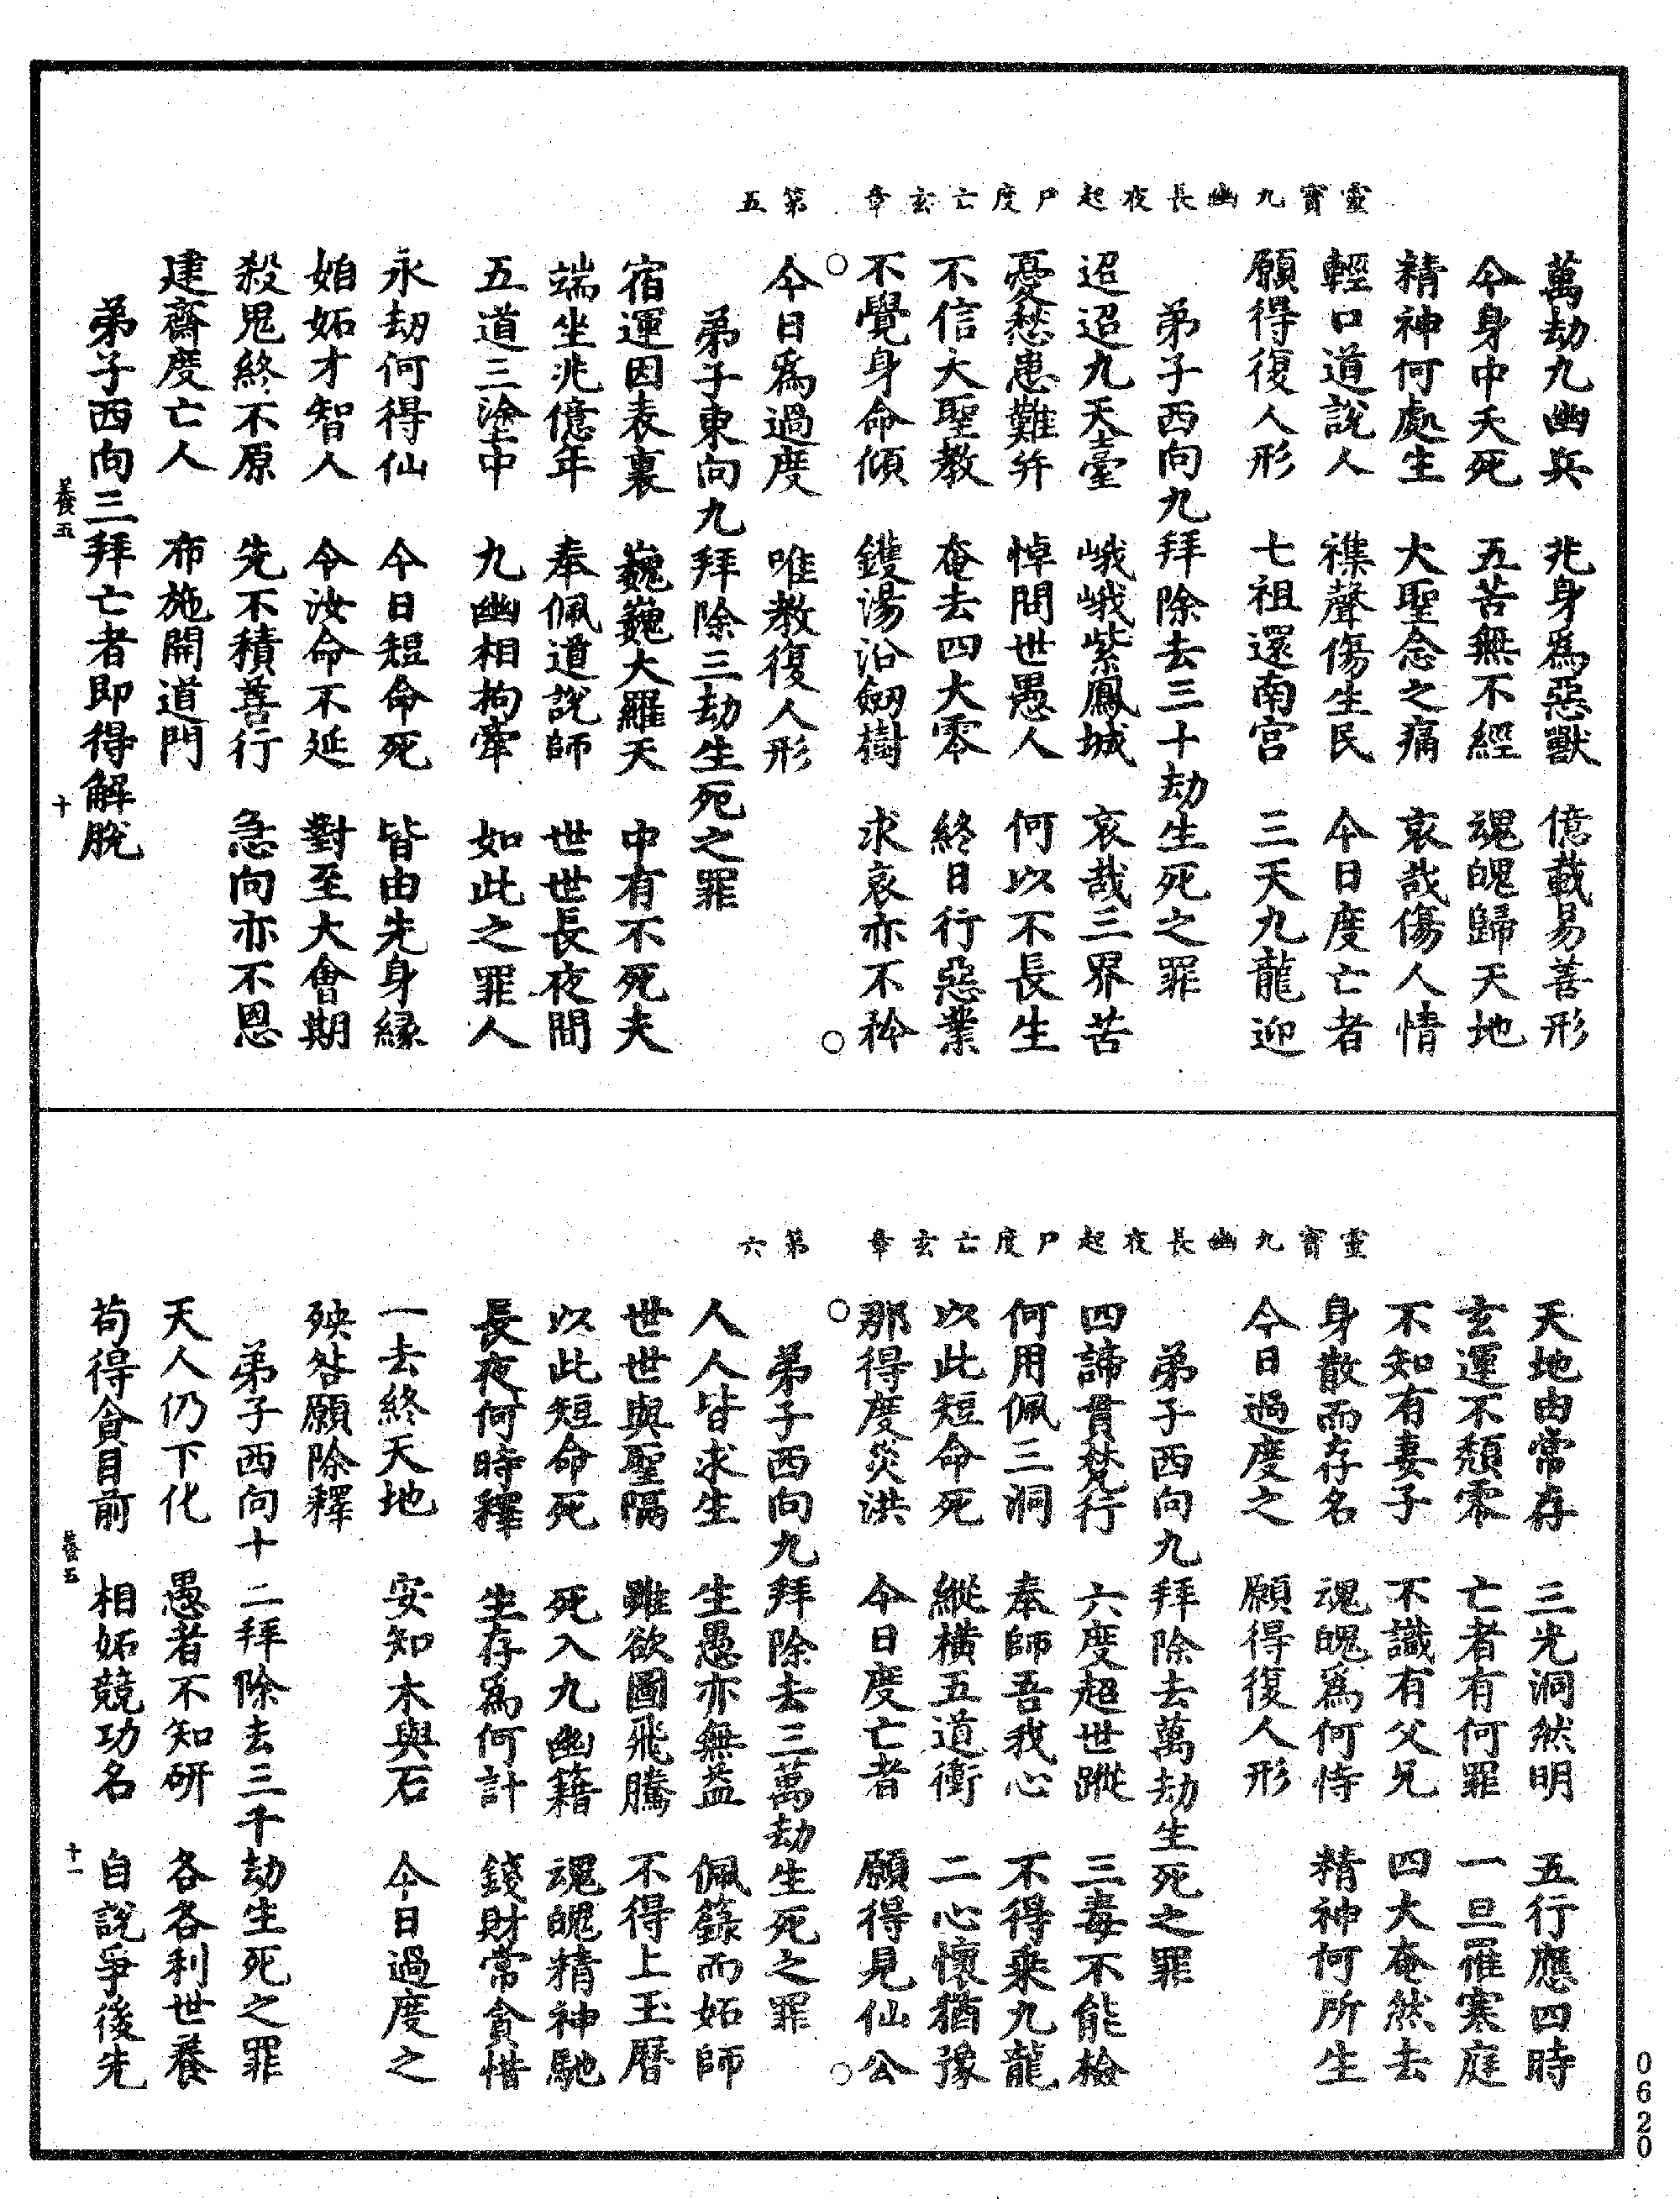 靈寳九幽長夜起尸度亡玄章　第五
萬劫九幽兵　兆身爲惡獸　億載易善形
今身中夭死　五苦無不經　魂魄歸天地
精神何處生　大聖念之痛　哀哉傷人情
輕口道說人　襍聲傷生民　今日度亡者
願得復人形　七祖還南宫　三天九龍迎
弟子西向九拜除去三十劫生死之罪
迢迢九天臺　峨峨紫鳳城　哀哉三界苦
憂愁患難并　悼問世愚人　何以不長生
不信大聖教　奄去四大零　終日行惡業
不覺身命傾　鑊湯沿劒樹　求哀亦不矜
今日爲過度　唯教復人形
弟子東向九拜除三劫生死之罪
宿運因表裏　巍巍大羅天　中有不死夫
端坐兆億年　奉佩道說師　世世長夜間
五道三塗中　九幽相拘牽　如此之罪人
永劫何得仙　今日短命死　皆由先身縁
妬才智人　令汝命不延　對至大會期
殺鬼終不原　先不積善行　急向亦不恩
建齋度亡人　布施開道門
弟子西向三拜亡者即得解脫
養五　十
靈寳九幽長夜起尸度亡玄章　第六
天地由常存　三光洞然明　五行應四時
玄運不頹零　亡者有何罪　一旦罹寒庭
不知有妻子　不識有父兄　四大奄然去
身散而存名　魂魄爲何恃　精神何所生
今日過度之　願得復人形
弟子西向九拜除去萬劫生死之罪
四諦貫梵行　六度超世蹤　三毒不能檢
何用佩三洞　奉師吾我心　不得乗九龍
以此短命死　縱横五道衝　二心懷猶豫
那得度炎洪　今日度亡者　願得見仙公
弟子西向九拜除去三萬劫生死之罪
人人皆求生　生愚亦無益　佩籙而妬師
世世與聖隔　雖欲圖飛騰　不得上玉曆
以此短命死　死入九幽籍　魂魄精神馳
長夜何時釋　生存爲何計　錢財常貪惜
一去終天地　安知木與石　今日過度之
殃咎願除釋
弟子西向十二拜除去三千劫生死之罪
天人仍下化　愚者不知研　各各利世養
苟得貪目前　相妬競功名　自說爭後先
養五　十一
0620